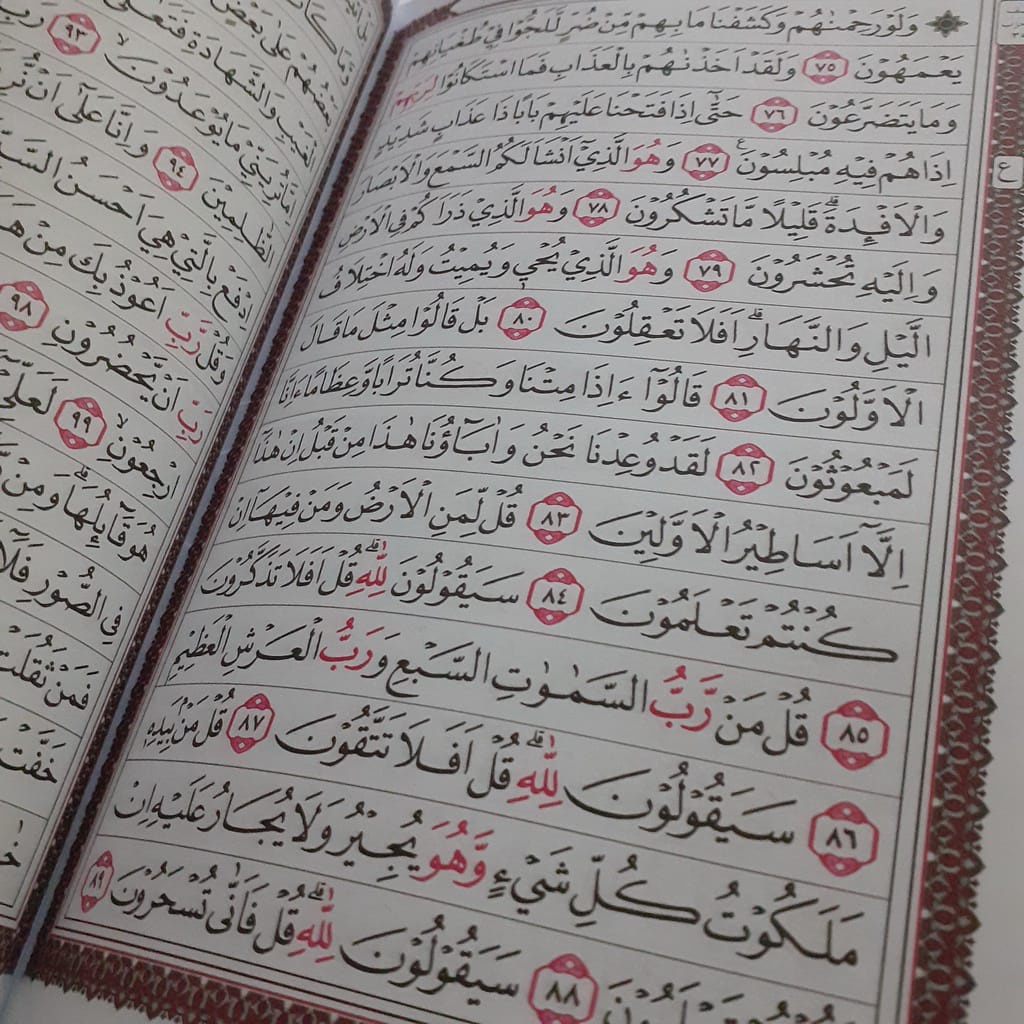 وَلَوْ رَحِمْنٰهُمْ وَكَشَفْنَا مَا بِهِمْ مِّنْ ضُرٍّ لَّلَجُّوْا فِيْ طُغْيَانِهِمْ
يَعْمَهُوْنَ ٧٥ وَلَقَدْ اَخَذْنٰهُمْ بِالْعَذَابِ فَمَا اسْتَكَانُوْا لِرَبِّهِمْ
وَمَا يَتَضَرَّعُوْنَ ٧٦ حَتّٰٓى اِذَا فَتَحْنَا عَلَيْهِمْ بَابًا ذَا عَذَابٍ شَدِيْدٍ
اِذَا هُمْ فِيْهِ مُبْلِسُوْنَ ٧٧ وَهُوَ الَّذِيْٓ اَنْشَاَ لَكُمُ السَّمْعَ وَالْاَبْصَارَ
وَالْاَفْـِٕدَةَ ۗ قَلِيْلًا مَّا تَشْكُرُوْنَ ٧٨ وَهُوَ الَّذِيْ ذَرَاَكُمْ فِى الْاَرْضِ
وَاِلَيْهِ تُحْشَرُوْنَ ٧٩ وَهُوَ الَّذِيْ يُحْيٖ وَيُمِيْتُ وَلَهُ اخْتِلَافُ
الَّيْلِ وَالنَّهَارِ ۗ اَفَلَا تَعْقِلُوْنَ ٨٠ بَلْ قَالُوْا مِثْلَ مَا قَالَ
الْاَوَّلُوْنَ ٨١ قَالُوْٓا ءَاِذَا مِتْنَا وَكُنَّا تُرَابًا وَّعِظَامًا ءَاِنَّا
لَمَبْعُوْثُوْنَ ٨٢ لَقَدْ وُعِدْنَا نَحْنُ وَاٰبَاۤؤُنَا هٰذَا مِنْ قَبْلُ اِنْ هٰذَآ
اِلَّآ اَسَاطِيْرُ الْاَوَّلِيْنَ ٨٣ قُلْ لِّمَنِ الْاَرْضُ وَمَنْ فِيْهَآ اِنْ
كُنْتُمْ تَعْلَمُوْنَ ٨٤ سَيَقُوْلُوْنَ لِلّٰهِ ۗ قُلْ اَفَلَا تَذَكَّرُوْنَ
٨٥ قُلْ مَنْ رَّبُّ السَّمٰوٰتِ السَّبْعِ وَرَبُّ الْعَرْشِ الْعَظِيْمِ
٨٦ سَيَقُوْلُوْنَ لِلّٰهِ ۗ قُلْ اَفَلَا تَتَّقُوْنَ ٨٧ قُلْ مَنْۢ بِيَدِهٖ
مَلَكُوْتُ كُلِّ شَيْءٍ وَّهُوَ يُجِيْرُ وَلَا يُجَارُ عَلَيْهِ اِنْ
كُنْتُمْ تَعْلَمُوْنَ ٨٨ سَيَقُوْلُوْنَ لِلّٰهِ ۗ قُلْ فَاَنّٰى تُسْحَرُوْنَ ٨٩
ع
بَعْضُهُمْ عَلٰى بَعْضٍ
الْغَيْبِ وَالشَّهَادَةِ فَتَعٰلٰى
٩٣
اِمَّا تُرِيَنِّيْ مَا يُوْعَدُوْنَ
الظّٰلِمِيْنَ ٩٤ وَاِنَّا عَلٰٓى اَنْ
اِدْفَعْ بِالَّتِيْ هِيَ اَحْسَنُ
وَقُلْ رَّبِّ اَعُوْذُ بِكَ مِنْ
٩٨
رَبِّ اَنْ يَّحْضُرُوْنِ
ارْجِعُوْنِ ٩٩ لَعَلِّيْ
هُوَ قَاۤىِٕلُهَا ۗ وَمِنْ
فِى الصُّوْرِ فَلَآ
فَمَنْ ثَقُلَتْ
خَفَّتْ